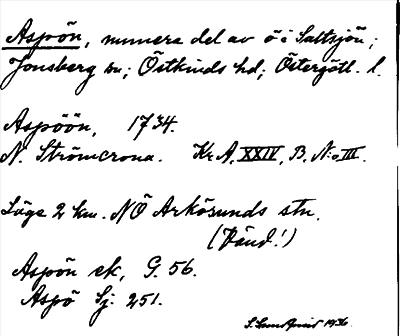 Aspön, numera del av ö i Saltsjön;
Jonsberg sn; Östkinds hd; Östergötl. l.
Aspöön, 1734.
N. Strömcrona. Kr. A, XXIV, B. N:o III.
Läge 2 km. NÖ Arkösunds stn.
(Vänd!)
Aspön ek, G. 56.
Aspö Sj. 251.
S. 1936